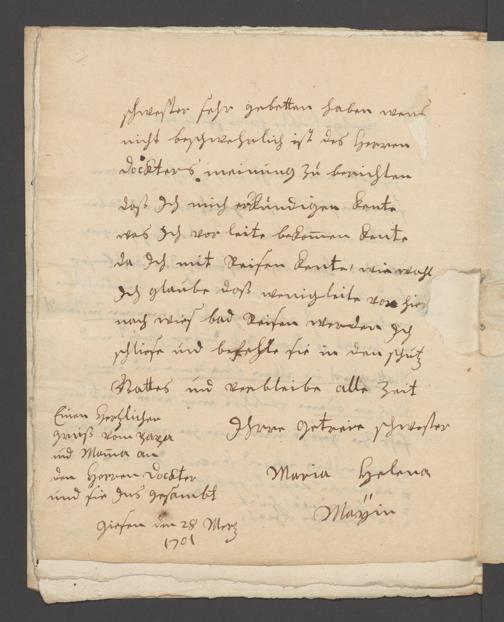 schwester sehr gebetten haben wens
nicht beschwehrlich ist des Herren
dockters meinung zu berichten
daß Ich mich erkundigen kente
was Ich vor leite bekomen kente
da Ich mit Reisen kente, wie wohl
Ich glaube daß wenig leite von hier
nach wies bad Reisen werden Ich
schliese und befehle sie in den schutz
Gottes und verbleibe alle Zeit
Ihre getreie schwester
Maria Helena
Mayin
Einen Hertzlichen
grueß vom papa
und Mama an
den Herren dockter
und sie Ins gesambt
giesen den 28 Mertz
1701